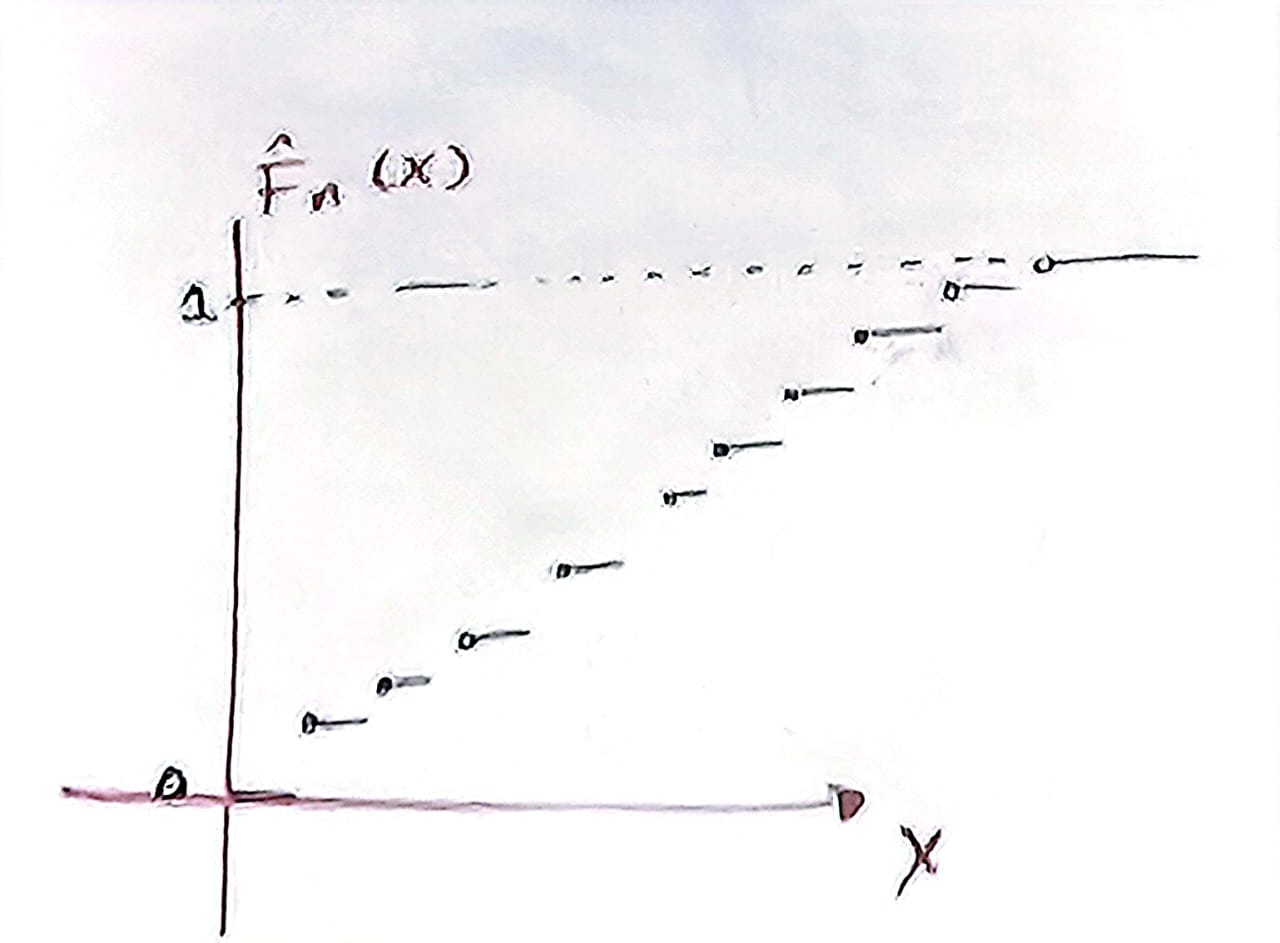 F̂n (x)
1
0
x